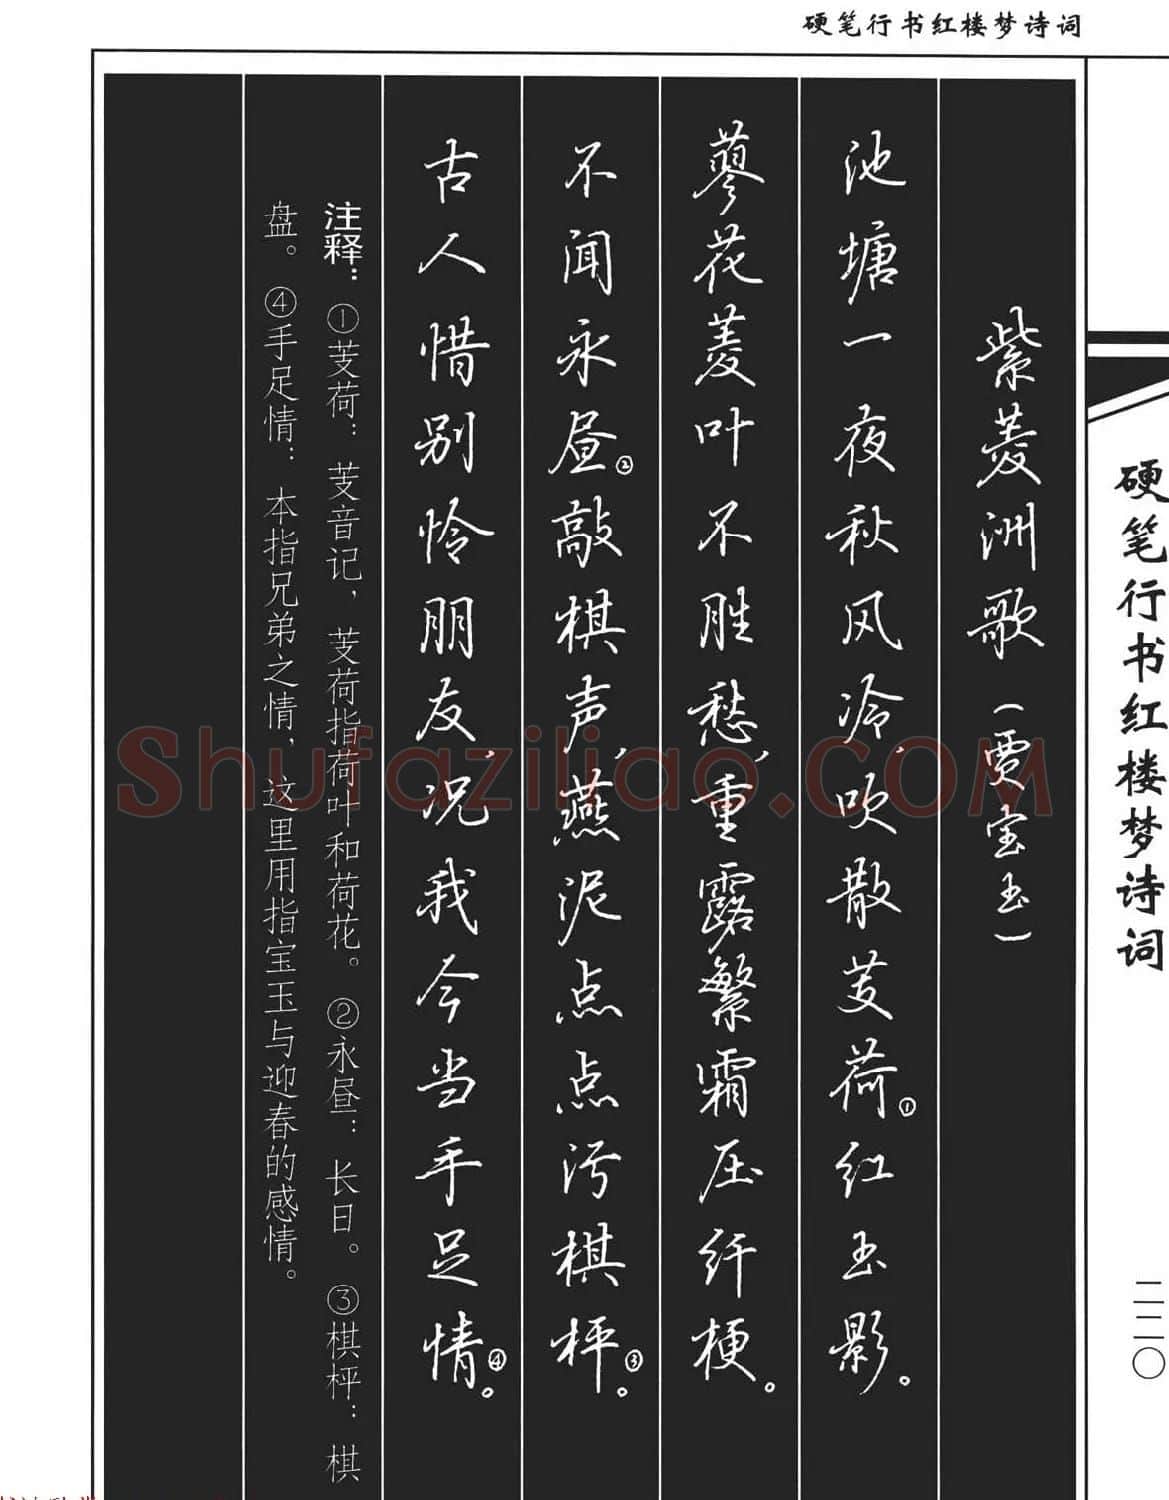 硬笔行书红楼梦诗词
紫菱洲歌（贾宝玉）
池塘一夜秋风冷，吹散芰荷①红玉影。
蓼花菱叶不胜愁，重露繁霜压纤梗。
不闻永昼②敲棋声，燕泥点点污棋枰③。
古人惜别怜朋友，况我今当手足情④。
注释：①芰荷：芰音记，芰荷指荷叶和荷花。②永昼：长日。③棋枰：棋
盘。④手足情：本指兄弟之情，这里用指宝玉与迎春的感情。
硬笔行书红楼梦诗词
二二〇
Shufaziliao.COM